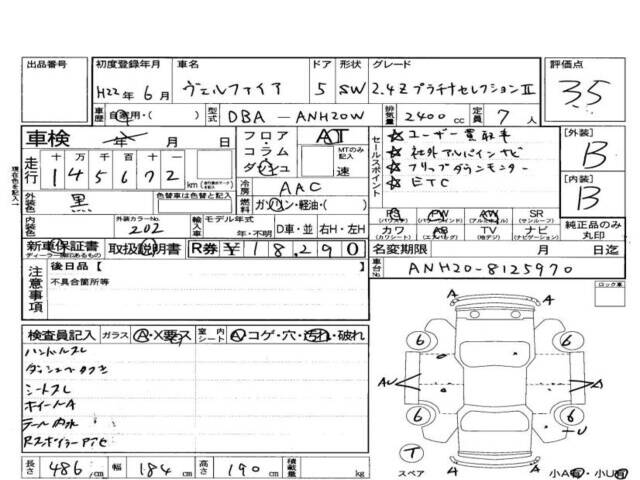 出品番号
初度登録年月 車名 ドア 形状 グレード 評価点
H22年 6月 ヴェルファイア 5 SW 2.4Z プラチナセレクションⅡ 3.5
車歴 自家用・( ) 型式 DBA-ANH20W 排気量 2400cc 定員 7人
車検 年 月 日
フロア コラム ダッシュ
AT
MTのみ記入 速
セールスポイント
☆ ユーザー買取車
☆ 社外アルパインナビ
☆ フリップダウンモニター
☆ ETC
[外装] B
[内装] B
走行 十万千百十一
145672 km
現在色を記入→
外装色 黒 色替車は色替と記入
冷房 AAC
燃料 ガソリン・軽油・( )
内装色 外装カラーNo. 202
輸入車 モデル年式 年・不明 D車・並 右H・左H
PS PW AW SR
(パワステ) (パワーウインド) (アルミホイル) (サンルーフ)
カワ AB TV ナビ
(カワシート) (エアバッグ) (地デジ) (ナビゲーション)
純正品のみ丸印
新車保証書 取扱説明書 R券 ¥18,290
ディーラー捺印あるもの
名変期限 月 日迄
車台No. ANH20-8125970
注意事項 後日品【 】
不具合箇所等
ロック車
検査員記入 ガラス A・X要 室内シート A コゲ・穴・汚れ・破れ
ハンドルスレ
シートスレ
ホイールA
テール内水
長さ 486cm 幅 184cm 高さ 190cm 積載量 kg
A A
6 6
AU A
6 6
U
T
スペア
A A
小A有・小U有